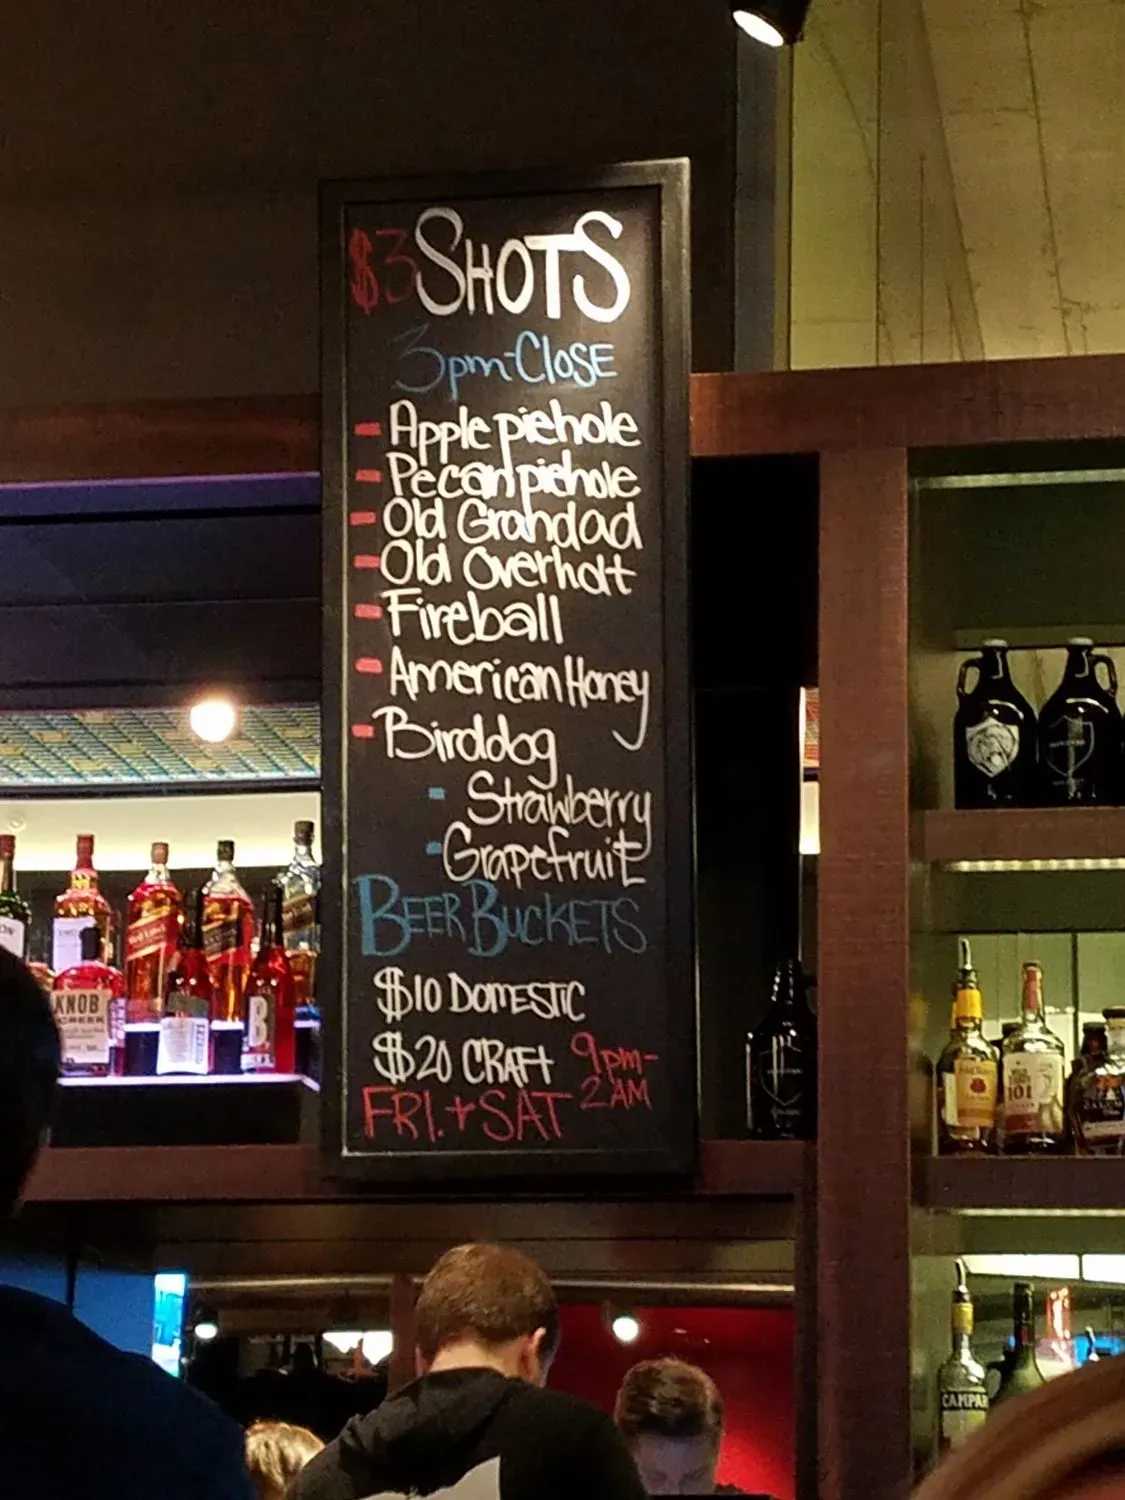 $3 SHOTS
3pm-CLOSE
- Apple piehole
- Pecan piehole
- Old Grandad
- Old Overholt
- Fireball
- American Honey
- Birddog
- Strawberry
- Grapefruit
BEER BUCKETS
$10 DOMESTIC
$20 CRAFT 9pm-
FRI. + SAT 2AM
Red Label
KNOB
CREEK
B
101
CAMPARI